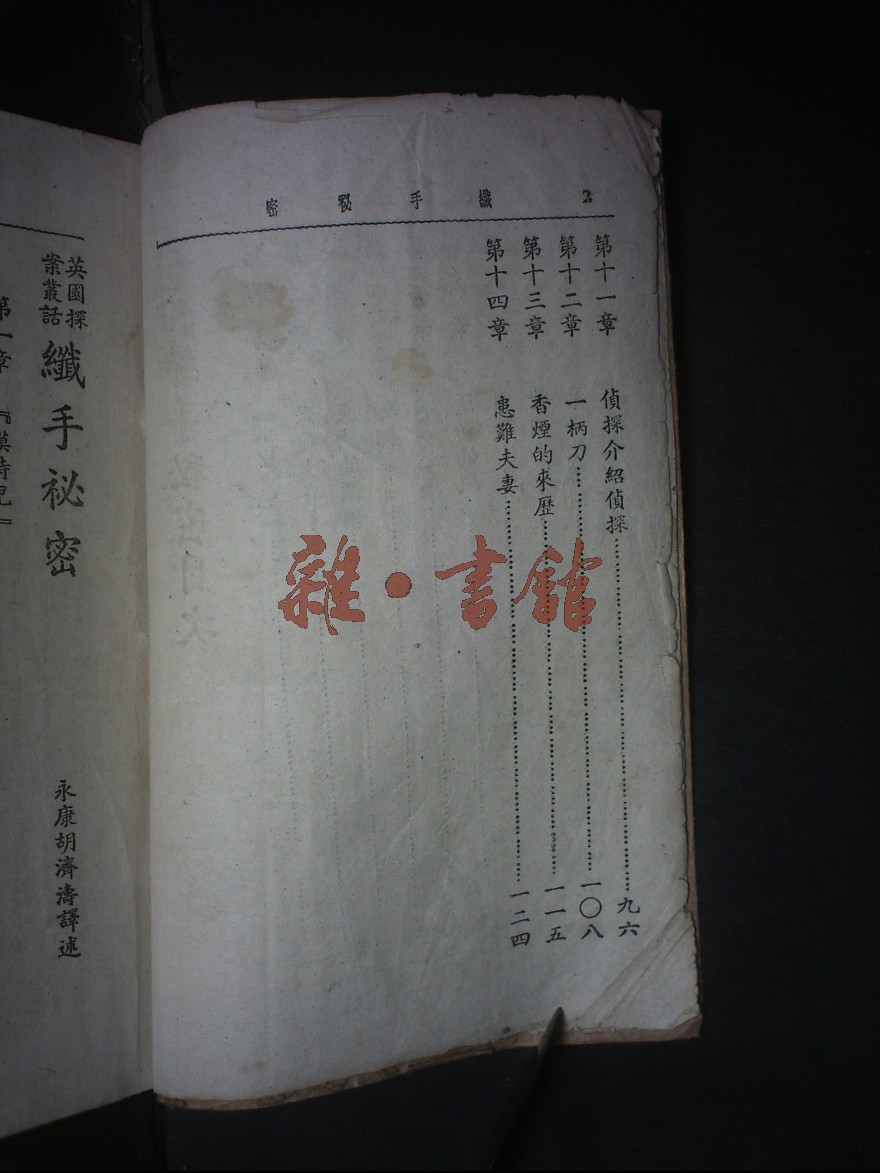 2 纖手秘密
第十一章 偵探介紹偵探……九六
第十二章 一柄刀……一〇八
第十三章 香煙的來歷……一一五
第十四章 患難夫妻……一二四
雜·書館
英國探案叢話
纖手祕密
永康胡濟濤譯述
第一章